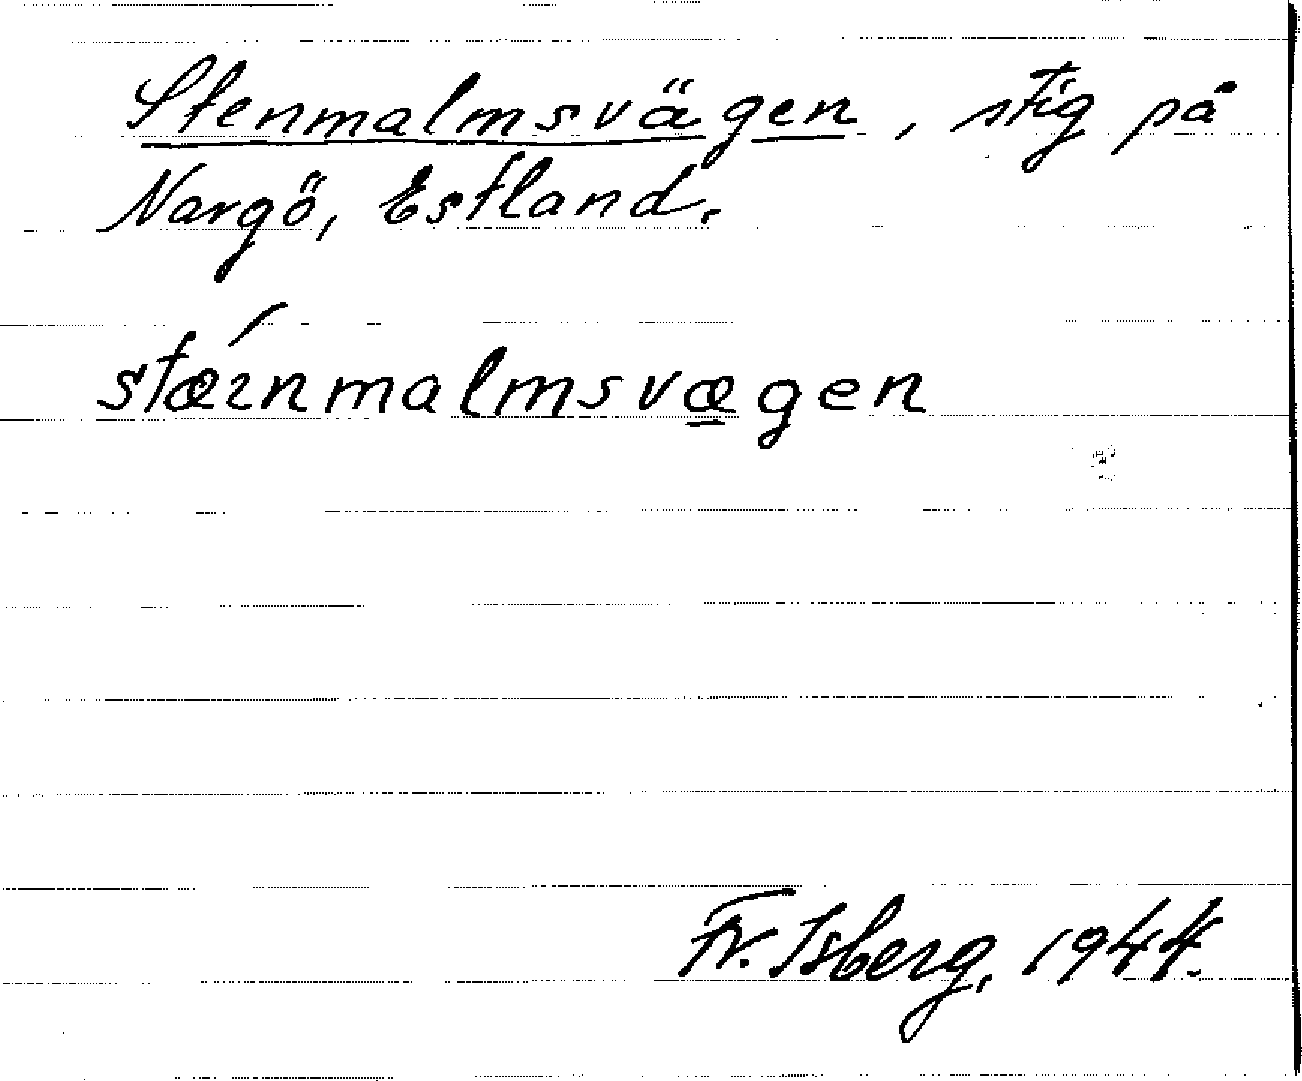 Stenmalmsvägen, stig på
Nargö, Estland.
stæ´ınmalmsvæ̲gen
Fr. Isberg, 1944.